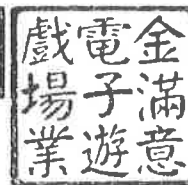 金滿意
電子遊
戲場業